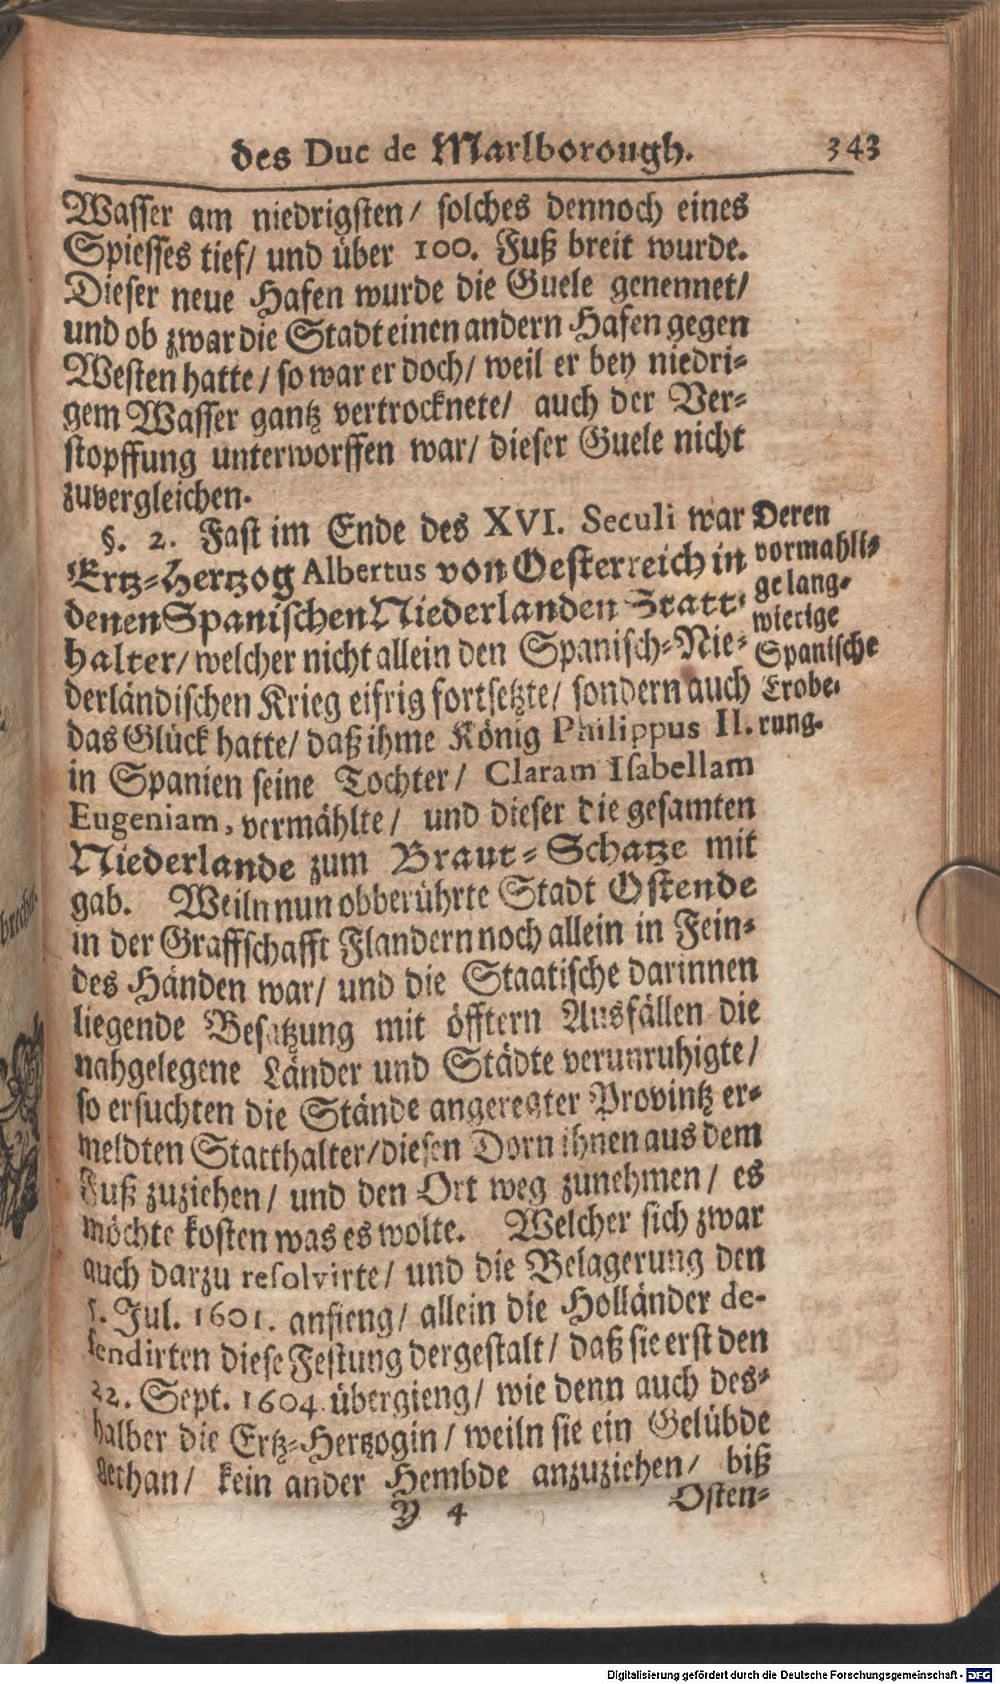 des Duc de Marlborough. 343
Wasser am niedrigsten/ solches dennoch eines
Spiesses tief/ und über 100. Fuß breit wurde.
Dieser neue Hafen wurde die Guele genennet/
und ob zwar die Stadt einen andern Hafen gegen
Westen hatte/ so war er doch/ weil er bey niedri-
gem Wasser gantz vertrocknete/ auch der Ver-
stopffung unterworffen war/ dieser Guele nicht
zuvergleichen.
§. 2. Fast im Ende des XVI. Seculi war
Ertz-Hertzog Albertus von Oesterreich in
denen Spanischen Niederlanden Statt-
halter/ welcher nicht allein den Spanisch-Nie-
derländischen Krieg eifrig fortsetzte/ sondern auch
das Glück hatte/ daß ihme König Philippus II.
in Spanien seine Tochter/ Claram Isabellam
Eugeniam, vermählte/ und dieser die gesamten
Niederlande zum Braut-Schatze mit
gab. Weiln nun obberührte Stadt Ostende
in der Graffschafft Flandern noch allein in Fein-
des Händen war/ und die Staatische darinnen
liegende Besatzung mit öfftern Ausfällen die
nahgelegene Länder und Städte verunruhigte/
so ersuchten die Stände angeregter Provintz er-
meldten Statthalter/ diesen Dorn ihnen aus dem
Fuß zuziehen/ und den Ort weg zunehmen/ es
möchte kosten was es wolte. Welcher sich zwar
auch darzu resolvirte/ und die Belagerung den
5. Jul. 1601. anfieng/ allein die Holländer de-
fendirten diese Festung dergestalt/ daß sie erst den
22. Sept. 1604. übergieng/ wie denn auch des-
halber die Ertz-Hertzogin/ weiln sie ein Gelübde
gethan/ kein ander Hembde anzuziehen/ biß
Y 4 Osten-
Deren
vormahli-
ge lang-
wierige
Spanische
Erobe-
rung.
Digitalisierung gefördert durch die Deutsche Forschungsgemeinschaft - DFG